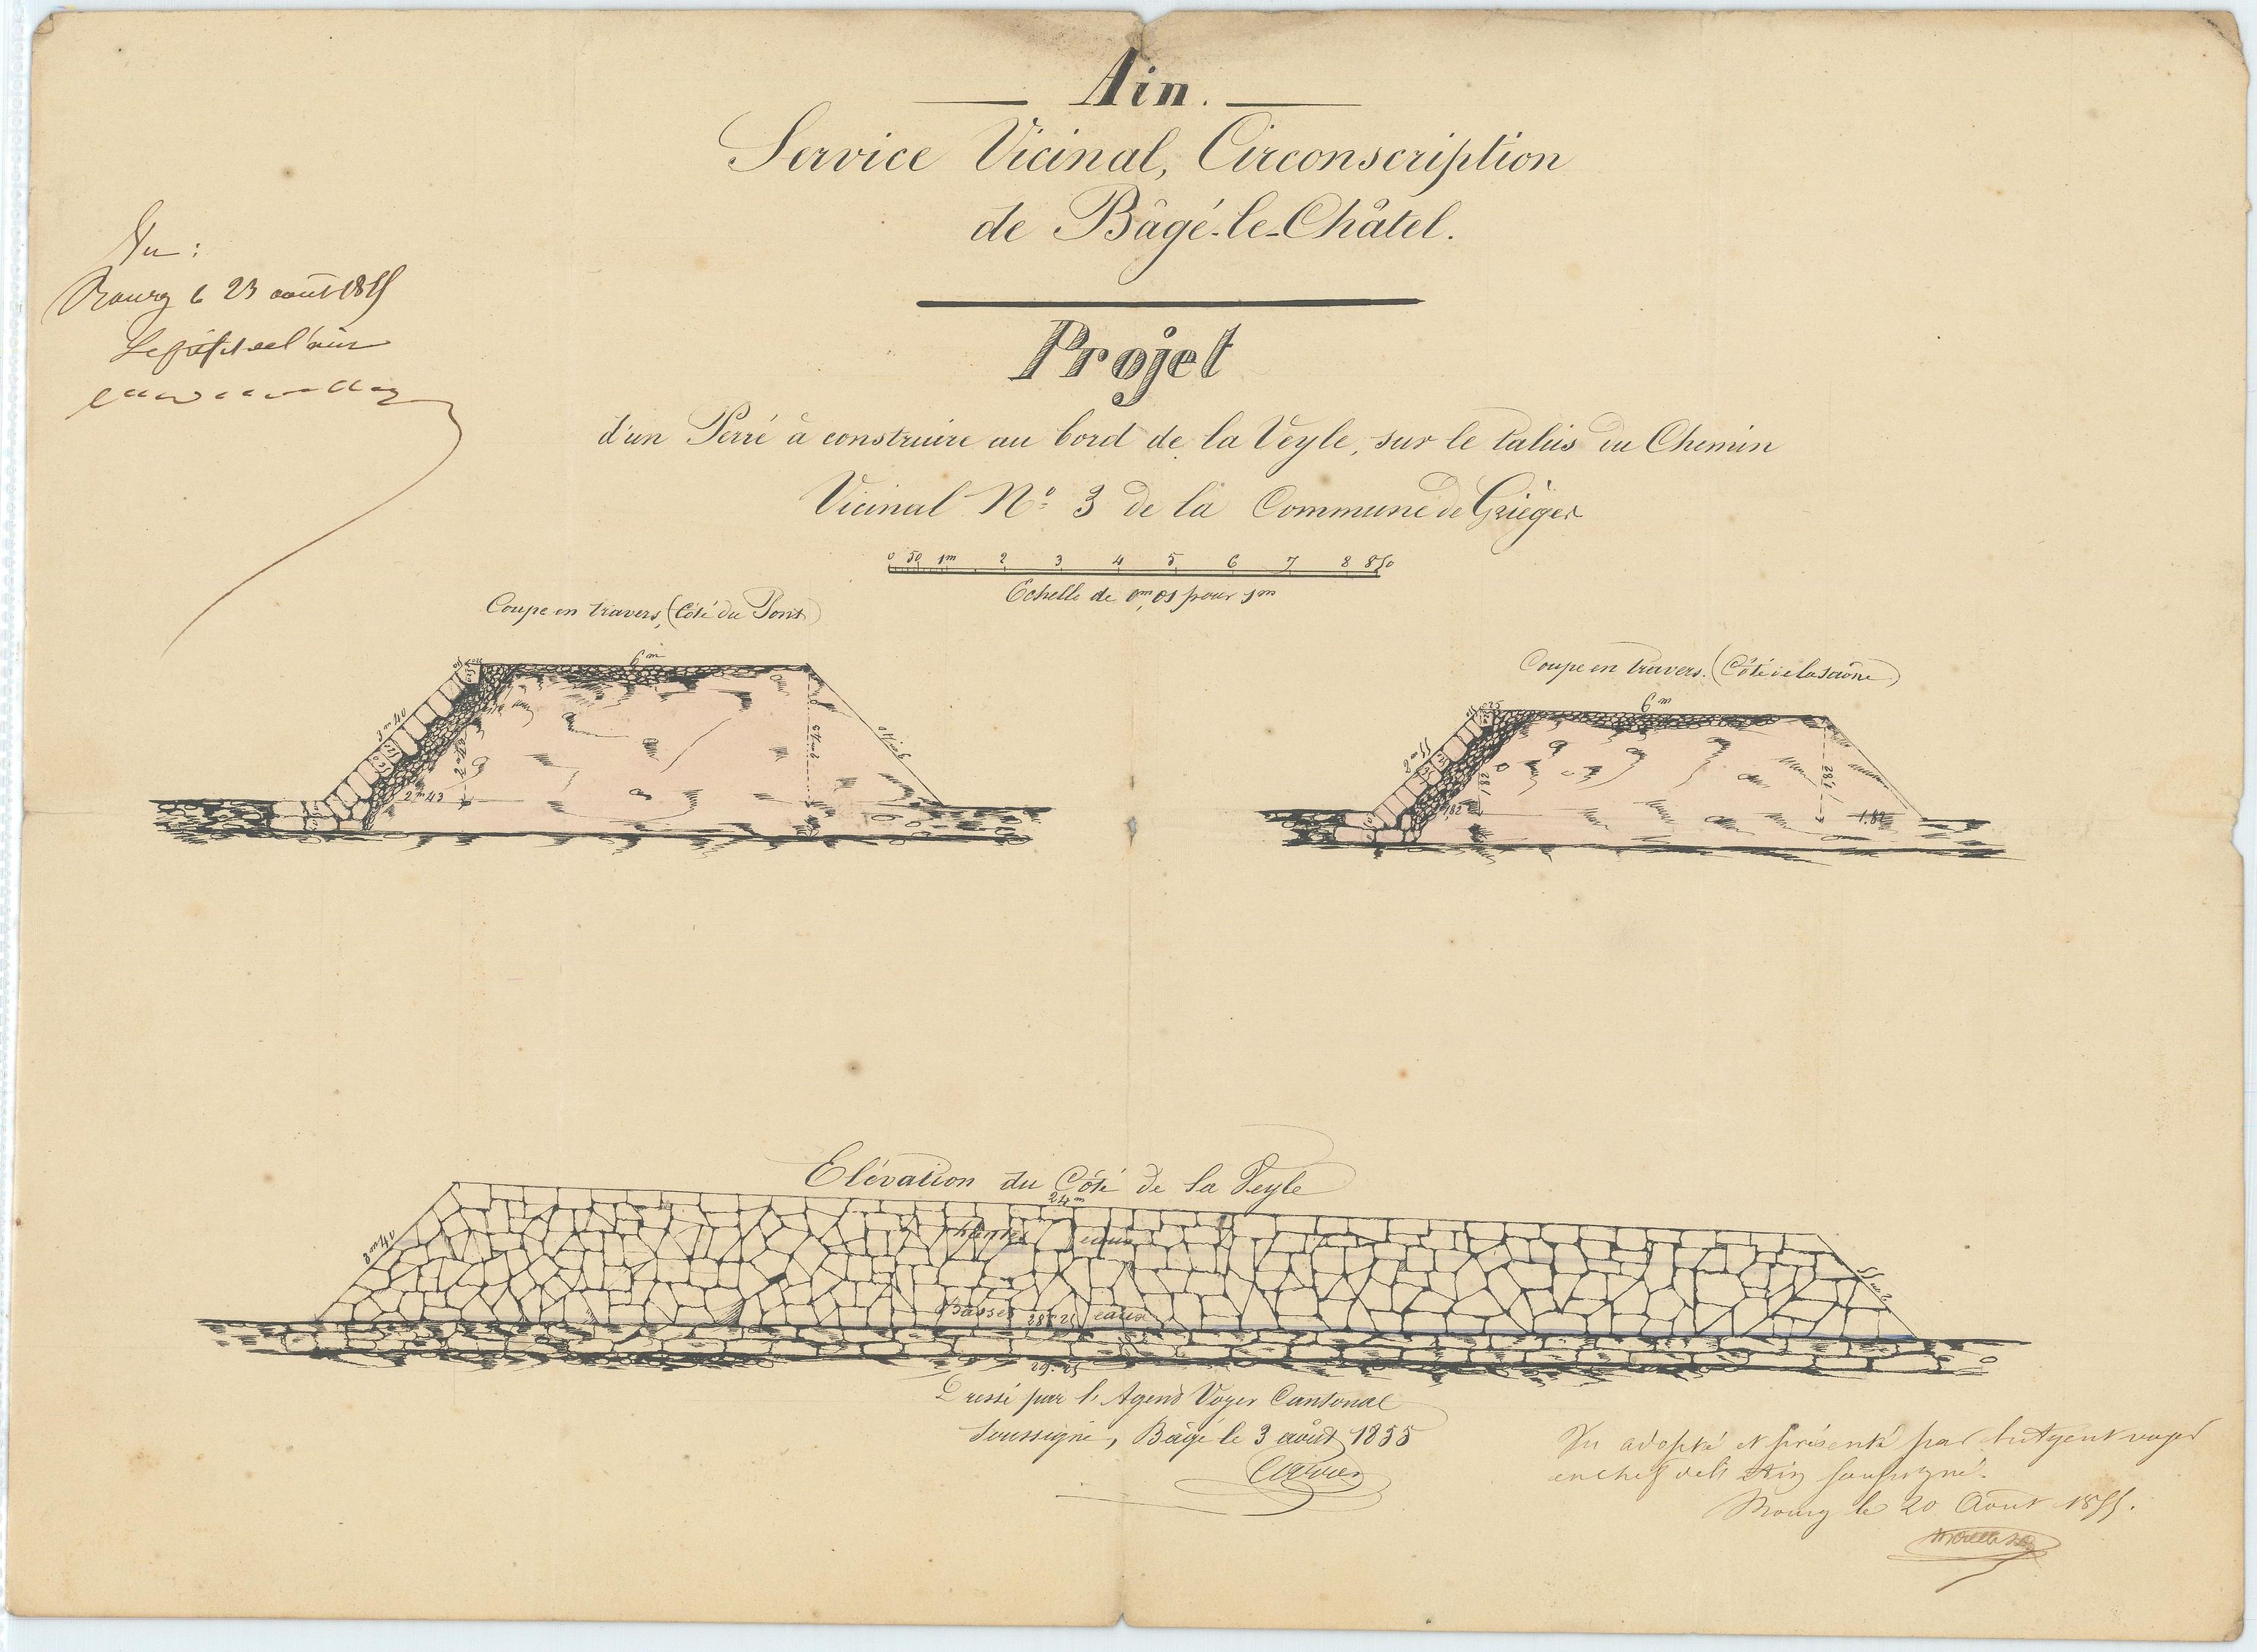 Ain.
Service Vicinal, Circonscription
de Bâgé-le-Châtel.
Vu :
Bourg le 23 août 1855
Le préfet de l'ain
Projet
d'un Perré à construire au bord de la Veyle, sur le talus du Chemin
Vicinal Nº 3 de la Commune de Grièges
0 50 1m 2 3 4 5 6 7 8 8,50
Echelle de 0m,01 pour 1m
Coupe en travers, (Côté du Pont)
6m
3m40
2m40
2m43
2m43
3m40
Coupe en travers. (Côté de la Saône)
6m
2m55
1,82
1,82
1,82
1,82
Elévation du Côté de la Veyle
24m
hautes eaux
Basses eaux
28m25
29.25
Dressé par l'Agent Voyer Cantonal
Soussigné, Bâgé le 3 août 1855
Vu adopté et présenté par l'Agent voyer
en chef de l'Ain soussigné.
Bourg le 20 Août 1855.